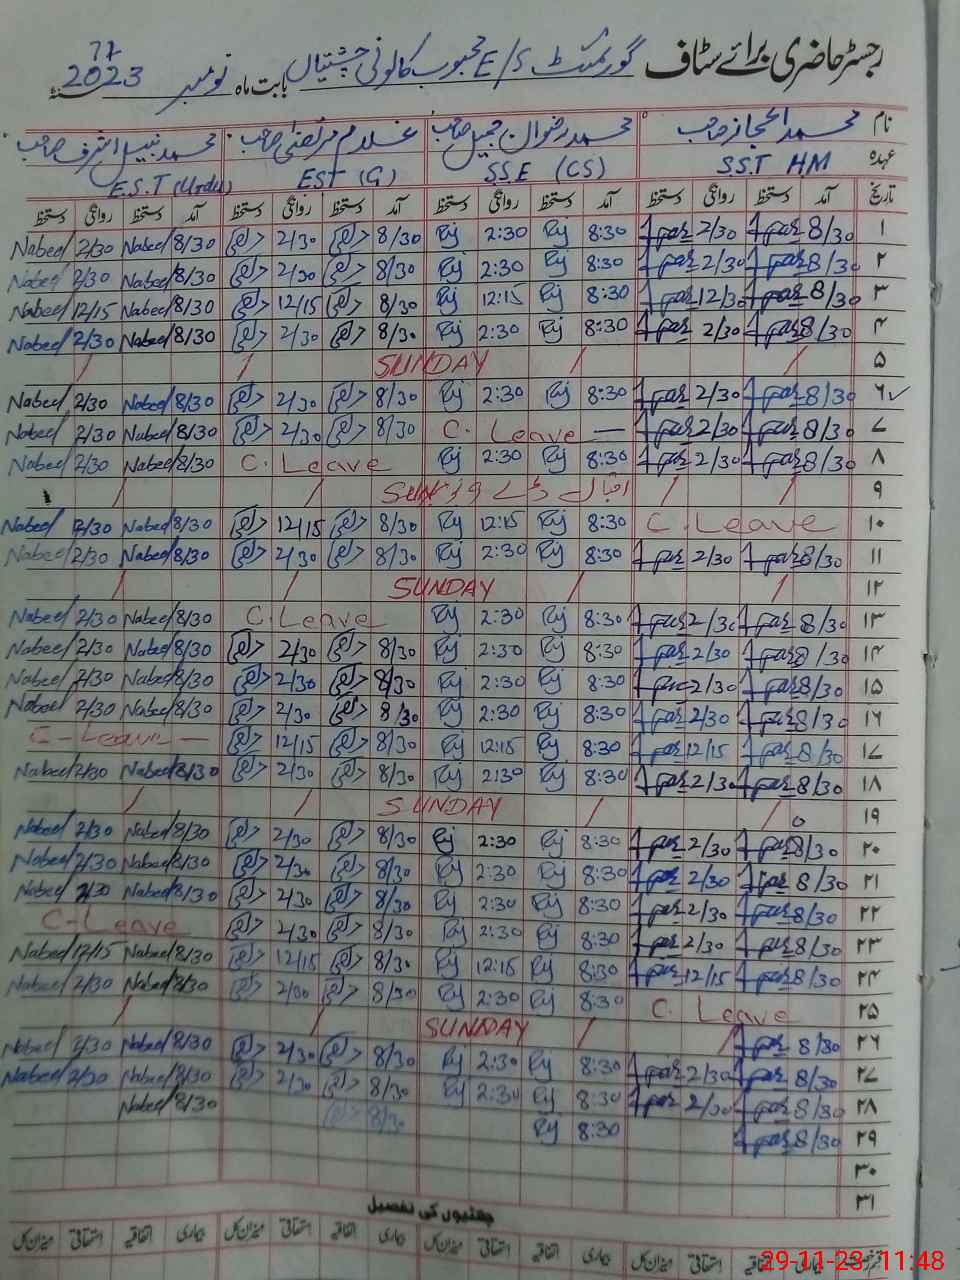 رجسٹر حاضری برائے سٹاف گورنمنٹ E/S محبوب کالونی چشتیاں بابت ماہ نومبر 2023 سنہ
نام محمد اعجاز صاحب محمد رضوان جمیل صاحب غلام مرتضیٰ صاحب محمد نبیل اشرف صاحب
عہدہ S.S.T HM SSE (CS) EST (G) E.S.T (Urdu)
تاریخ آمد دستخط روانگی دستخط آمد دستخط روانگی دستخط آمد دستخط روانگی دستخط آمد دستخط روانگی دستخط
۱ 8/30 2/30 8:30 Rj 2:30 Rj 8/30 2/30 8/30 Nabeel 2/30 Nabeel
۲ 8/30 2/30 8:30 Rj 2:30 Rj 8/30 2/30 8/30 Nabeel 2/30 Nabeel
۳ 8/30 12/30 8:30 Rj 12:15 Rj 8/30 12/15 8/30 Nabeel 12/15 Nabeel
۴ 8/30 2/30 8:30 Rj 2:30 Rj 8/30 2/30 8/30 Nabeel 2/30 Nabeel
۵ SUNDAY
۶ 8/30 2/30 8:30 Rj 2:30 Rj 8/30 2/30 8/30 Nabeel 2/30 Nabeel
۷ 8/30 2/30 C. Leave 8/30 2/30 8/30 Nabeel 2/30 Nabeel
۸ 8/30 2/30 8:30 Rj 2:30 Rj C. Leave 8/30 Nabeel 2/30 Nabeel
۹ اقبال ڈے
۱۰ C. Leave 8:30 Rj 12:15 Rj 8/30 12/15 8/30 Nabeel 12/30 Nabeel
۱۱ 8/30 2/30 8:30 Rj 2:30 Rj 8/30 2/30 8/30 Nabeel 2/30 Nabeel
۱۲ SUNDAY
۱۳ 8/30 2/30 8:30 Rj 2:30 Rj C. Leave 8/30 Nabeel 2/30 Nabeel
۱۴ 8/30 2/30 8:30 Rj 2:30 Rj 8/30 2/30 8/30 Nabeel 2/30 Nabeel
۱۵ 8/30 2/30 8:30 Rj 2:30 Rj 8/30 2/30 8/30 Nabeel 2/30 Nabeel
۱۶ 8/30 2/30 8:30 Rj 2:30 Rj 8/30 2/30 8/30 Nabeel 2/30 Nabeel
۱۷ 8/30 12/15 8:30 Rj 12:15 Rj 8/30 12/15 C-Leave
۱۸ 8/30 2/30 8:30 Rj 2:30 Rj 8/30 2/30 8/30 Nabeel 2/30 Nabeel
۱۹ SUNDAY
۲۰ 8/30 2/30 8:30 Rj 2:30 Rj 8/30 2/30 8/30 Nabeel 2/30 Nabeel
۲۱ 8/30 2/30 8:30 Rj 2:30 Rj 8/30 2/30 8/30 Nabeel 2/30 Nabeel
۲۲ 8/30 2/30 8:30 Rj 2:30 Rj 8/30 2/30 8/30 Nabeel 2/30 Nabeel
۲۳ 8/30 2/30 8:30 Rj 2:30 Rj 8/30 2/30 C-Leave
۲۴ 8/30 12/15 8:30 Rj 12:15 Rj 8/30 12/15 8/30 Nabeel 12/15 Nabeel
۲۵ C. Leave 8:30 Rj 2:30 Rj 8/30 2/30 8/30 Nabeel 2/30 Nabeel
۲۶ 8/30 SUNDAY
۲۷ 8/30 2/30 8:30 Rj 2:30 Rj 8/30 2/30 8/30 Nabeel 2/30 Nabeel
۲۸ 8/30 2/30 8:30 Rj 2:30 Rj 8/30 2/30 8/30 Nabeel 2/30 Nabeel
۲۹ 8/30 8:30 Rj 8/30 8/30 Nabeel
۳۰
۳۱
چھٹیوں کی تفصیل
بیماری اتفاقیہ استحقاقی میزان کل بیماری اتفاقیہ استحقاقی میزان کل بیماری اتفاقیہ استحقاقی میزان کل بیماری اتفاقیہ استحقاقی میزان کل
29-11-23 11:48